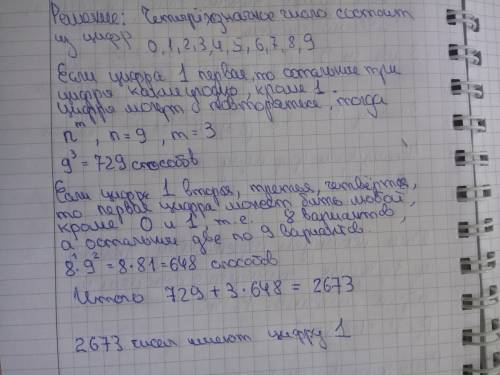 Решение: Четырёхзначное число состоит
из цифр
0,1,2,3,4,5,6,7,8,9
Если цифра 1 первая, то остальные три
цифры какие угодно, кроме 1.
цифры могут повторяться, тогда
n^m, n=9, m=3
9³=729 способов
Если цифра 1 вторая, третья, четвёртая,
то первая цифра может быть любой,
кроме 0 и 1, т.е. 8 вариантов,
а остальные две по 9 вариантов
8¹·9²=8·81=648 способов
Итого 729+3·648=2673
2673 чисел имеют цифру 1